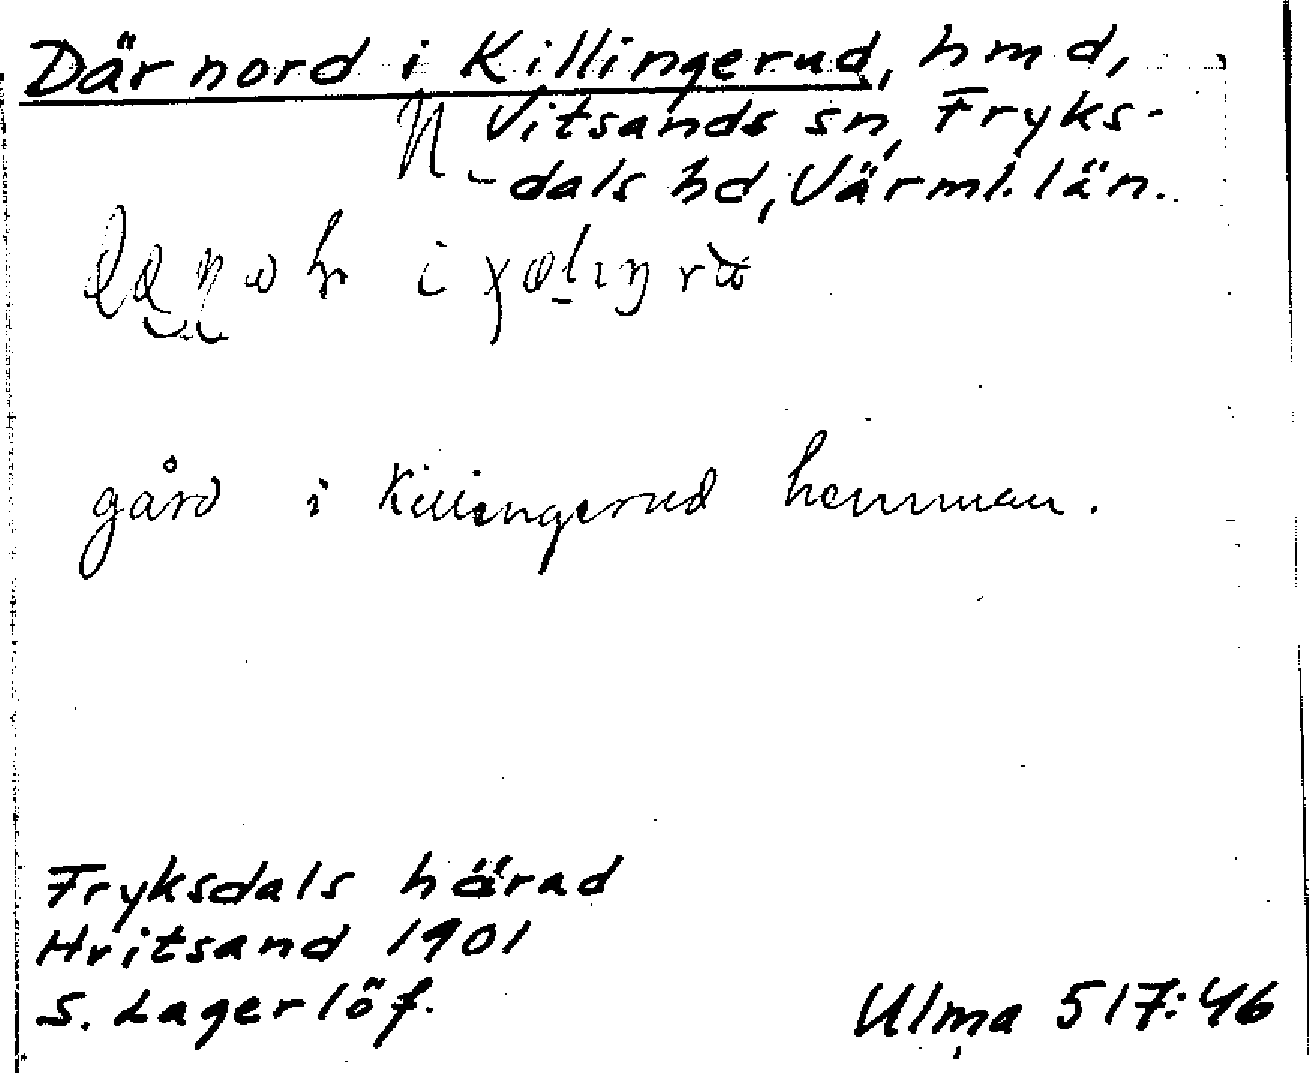 Där nord i Killingerud, hmd,
N Vitsands sn, Fryks-
dals hd, Värml. län.
i
gård i Killingerud hemman.
Fryksdals härad
Hvitsand 1901
S. Lagerlöf.
Ulma 517:46